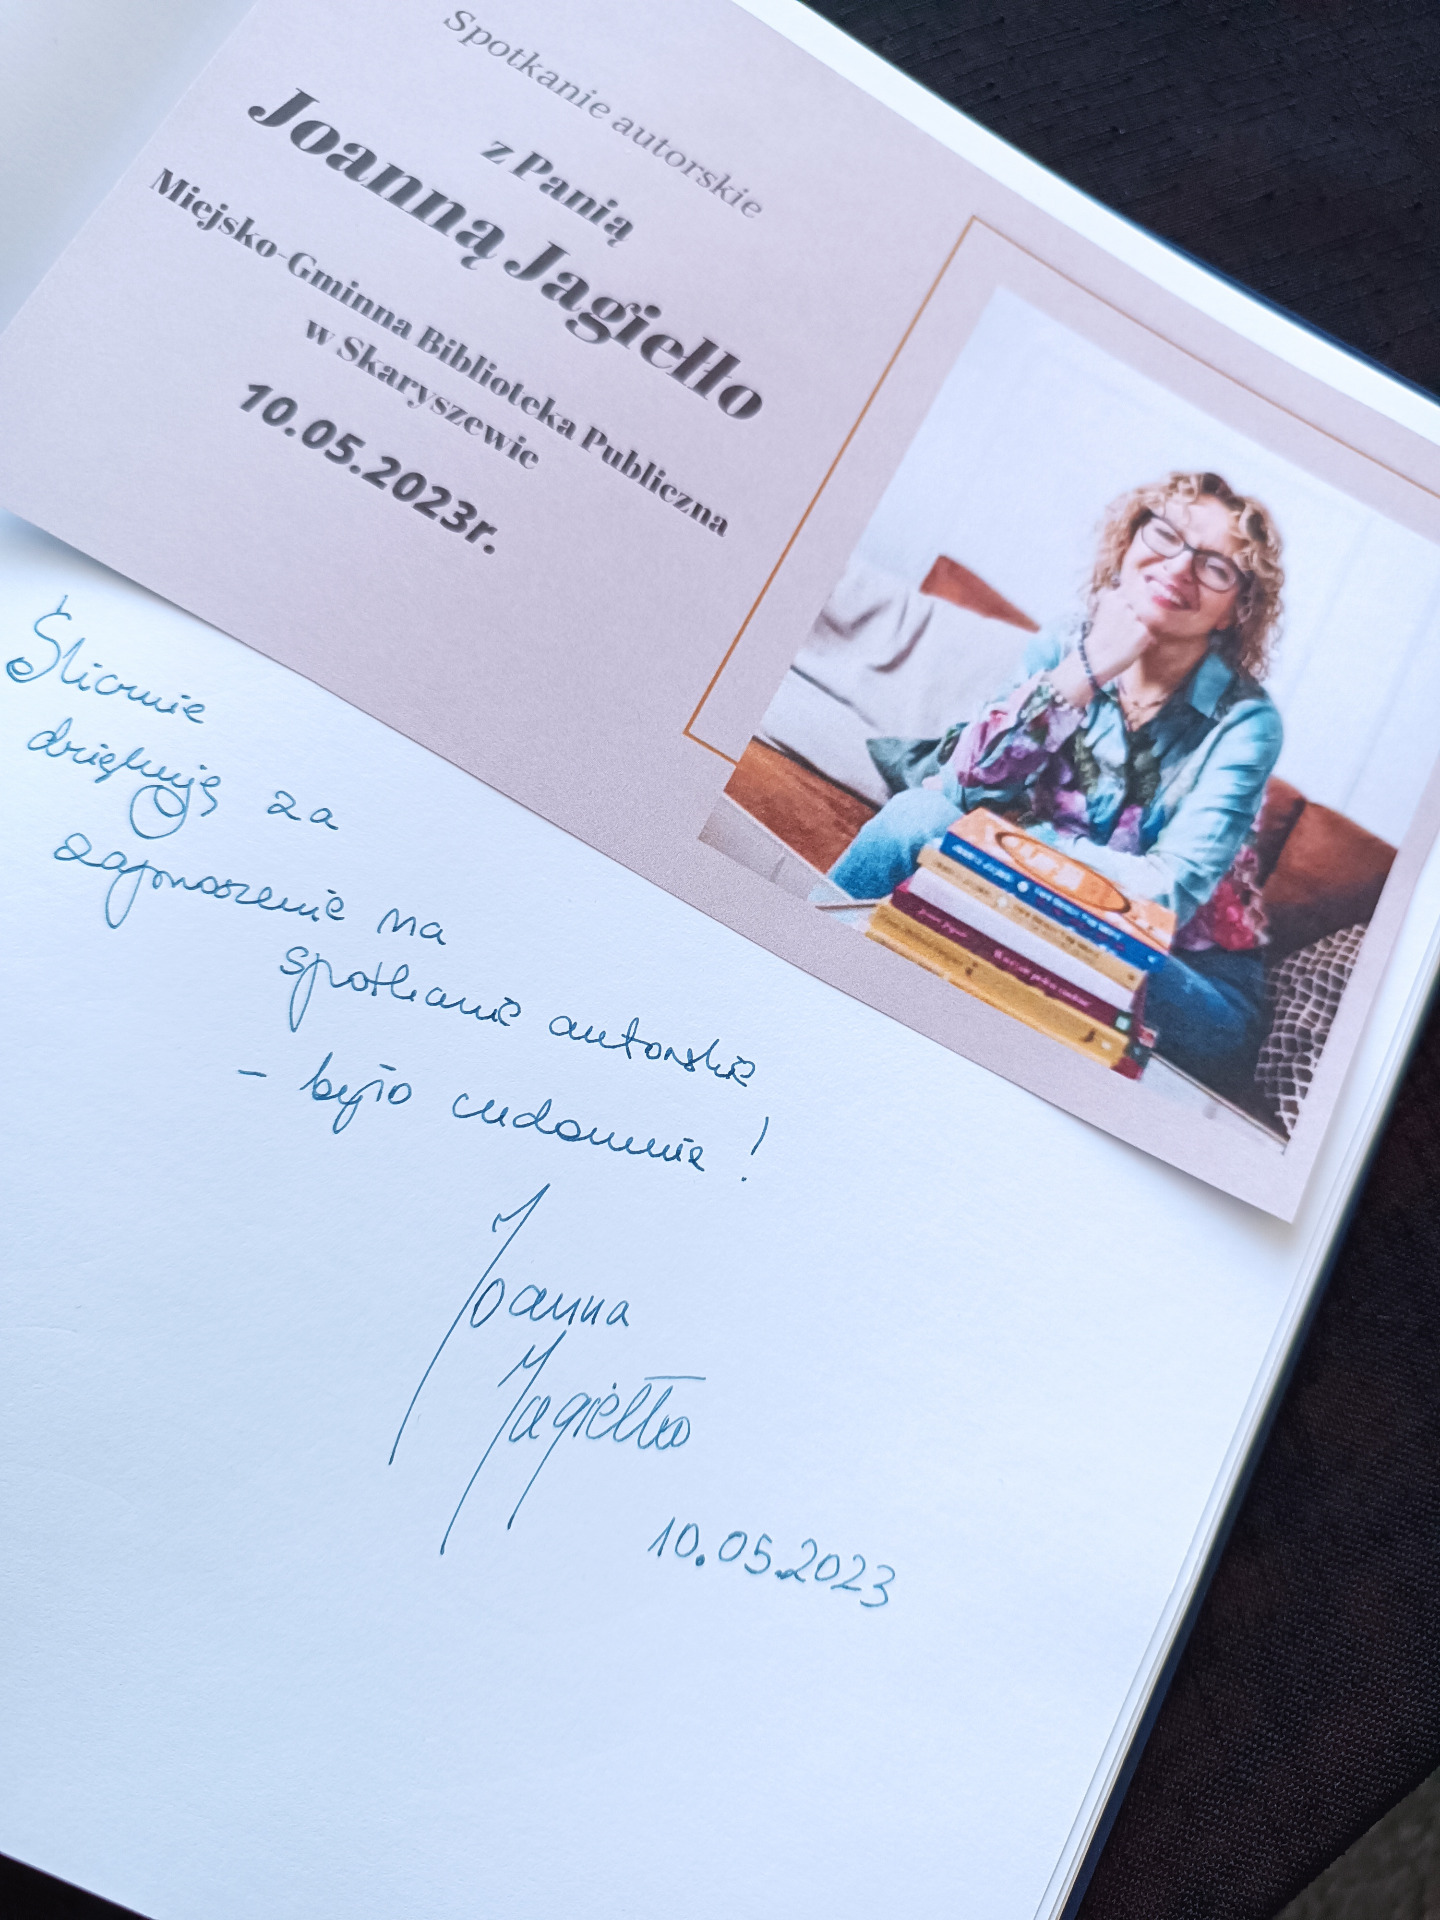 Spotkanie autorskie
z Panią
Joanną Jagiełło
Miejsko-Gminna Biblioteka Publiczna
w Skaryszewie
10.05.2023r.
Ślicznie
dziękuję za
zaproszenie na
spotkanie autorskie
- było cudownie!
Joanna
Jagiełło
10.05.2023